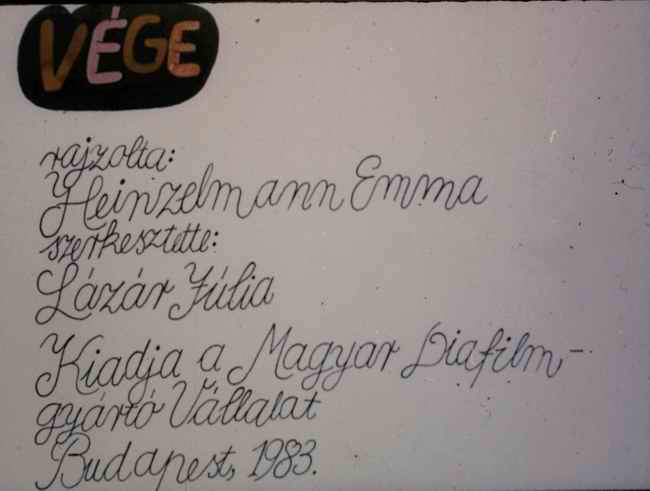 VÉGE
rajzolta:
Heinzelmann Emma
szerkesztette:
Lázár Júlia
Kiadja a Magyar Diafilm-
gyártó Vállalat
Budapest, 1983.